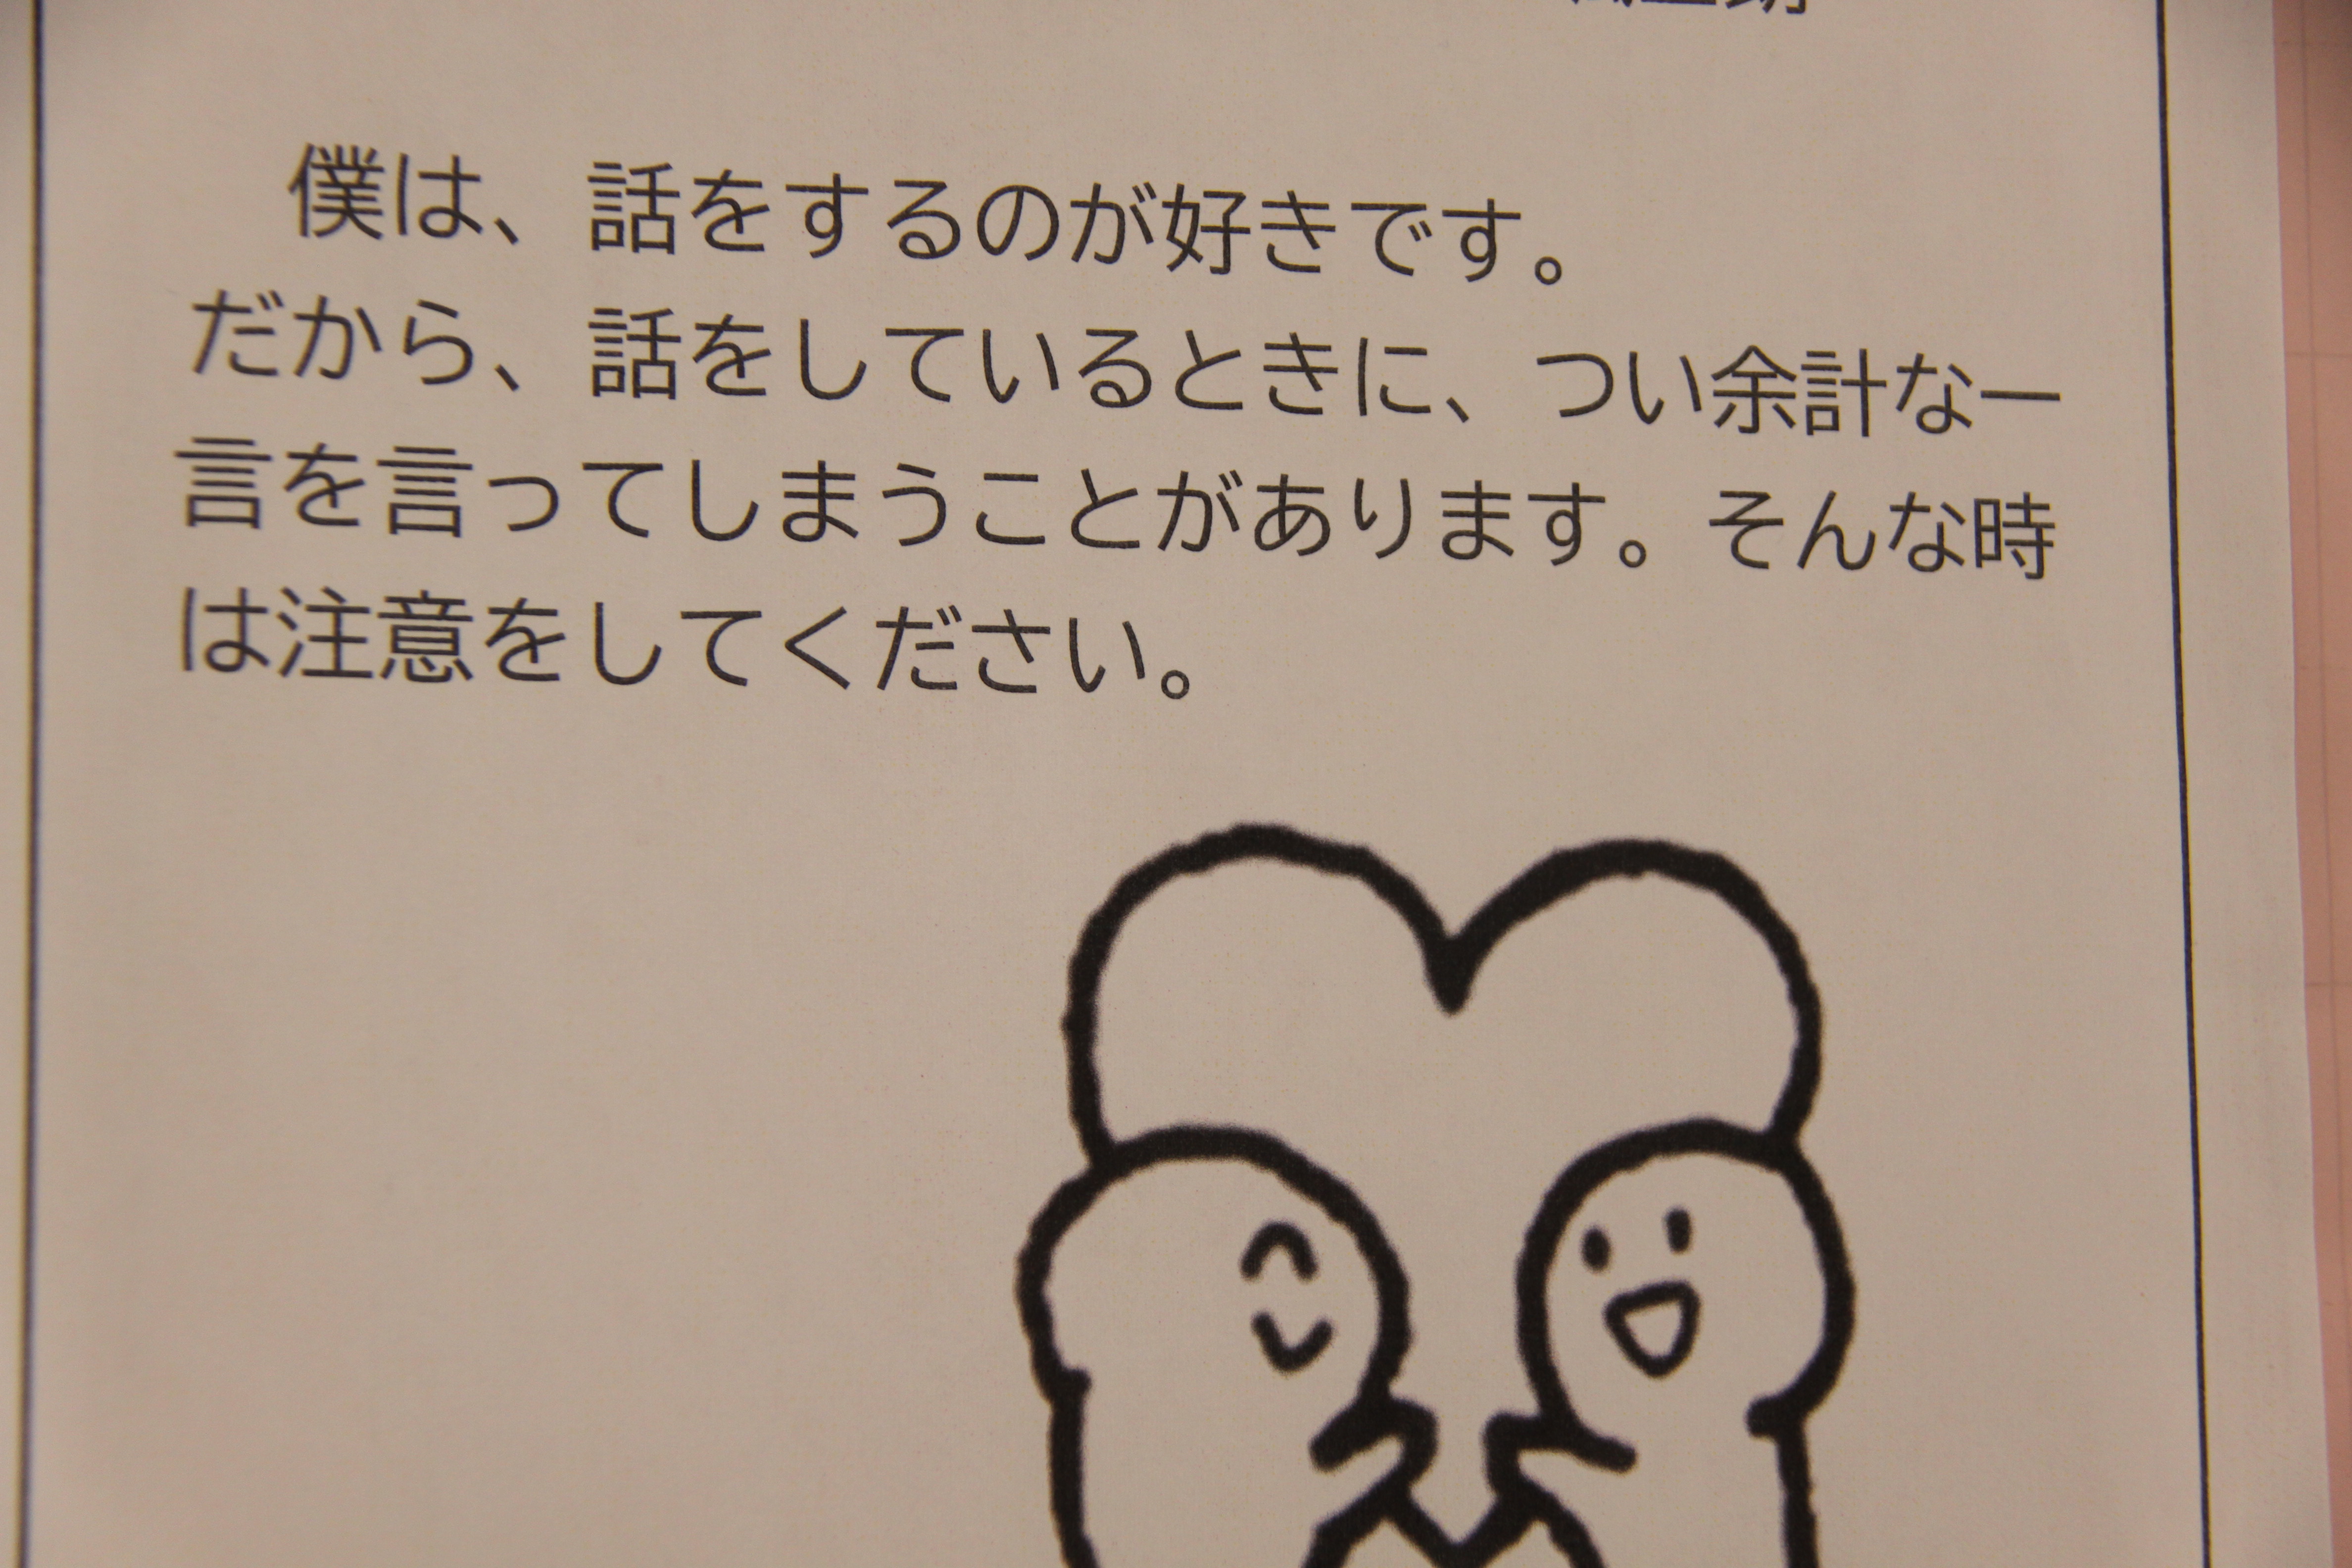 僕は、話をするのが好きです。
だから、話をしているときに、つい余計な一
言を言ってしまうことがあります。そんな時
は注意をしてください。